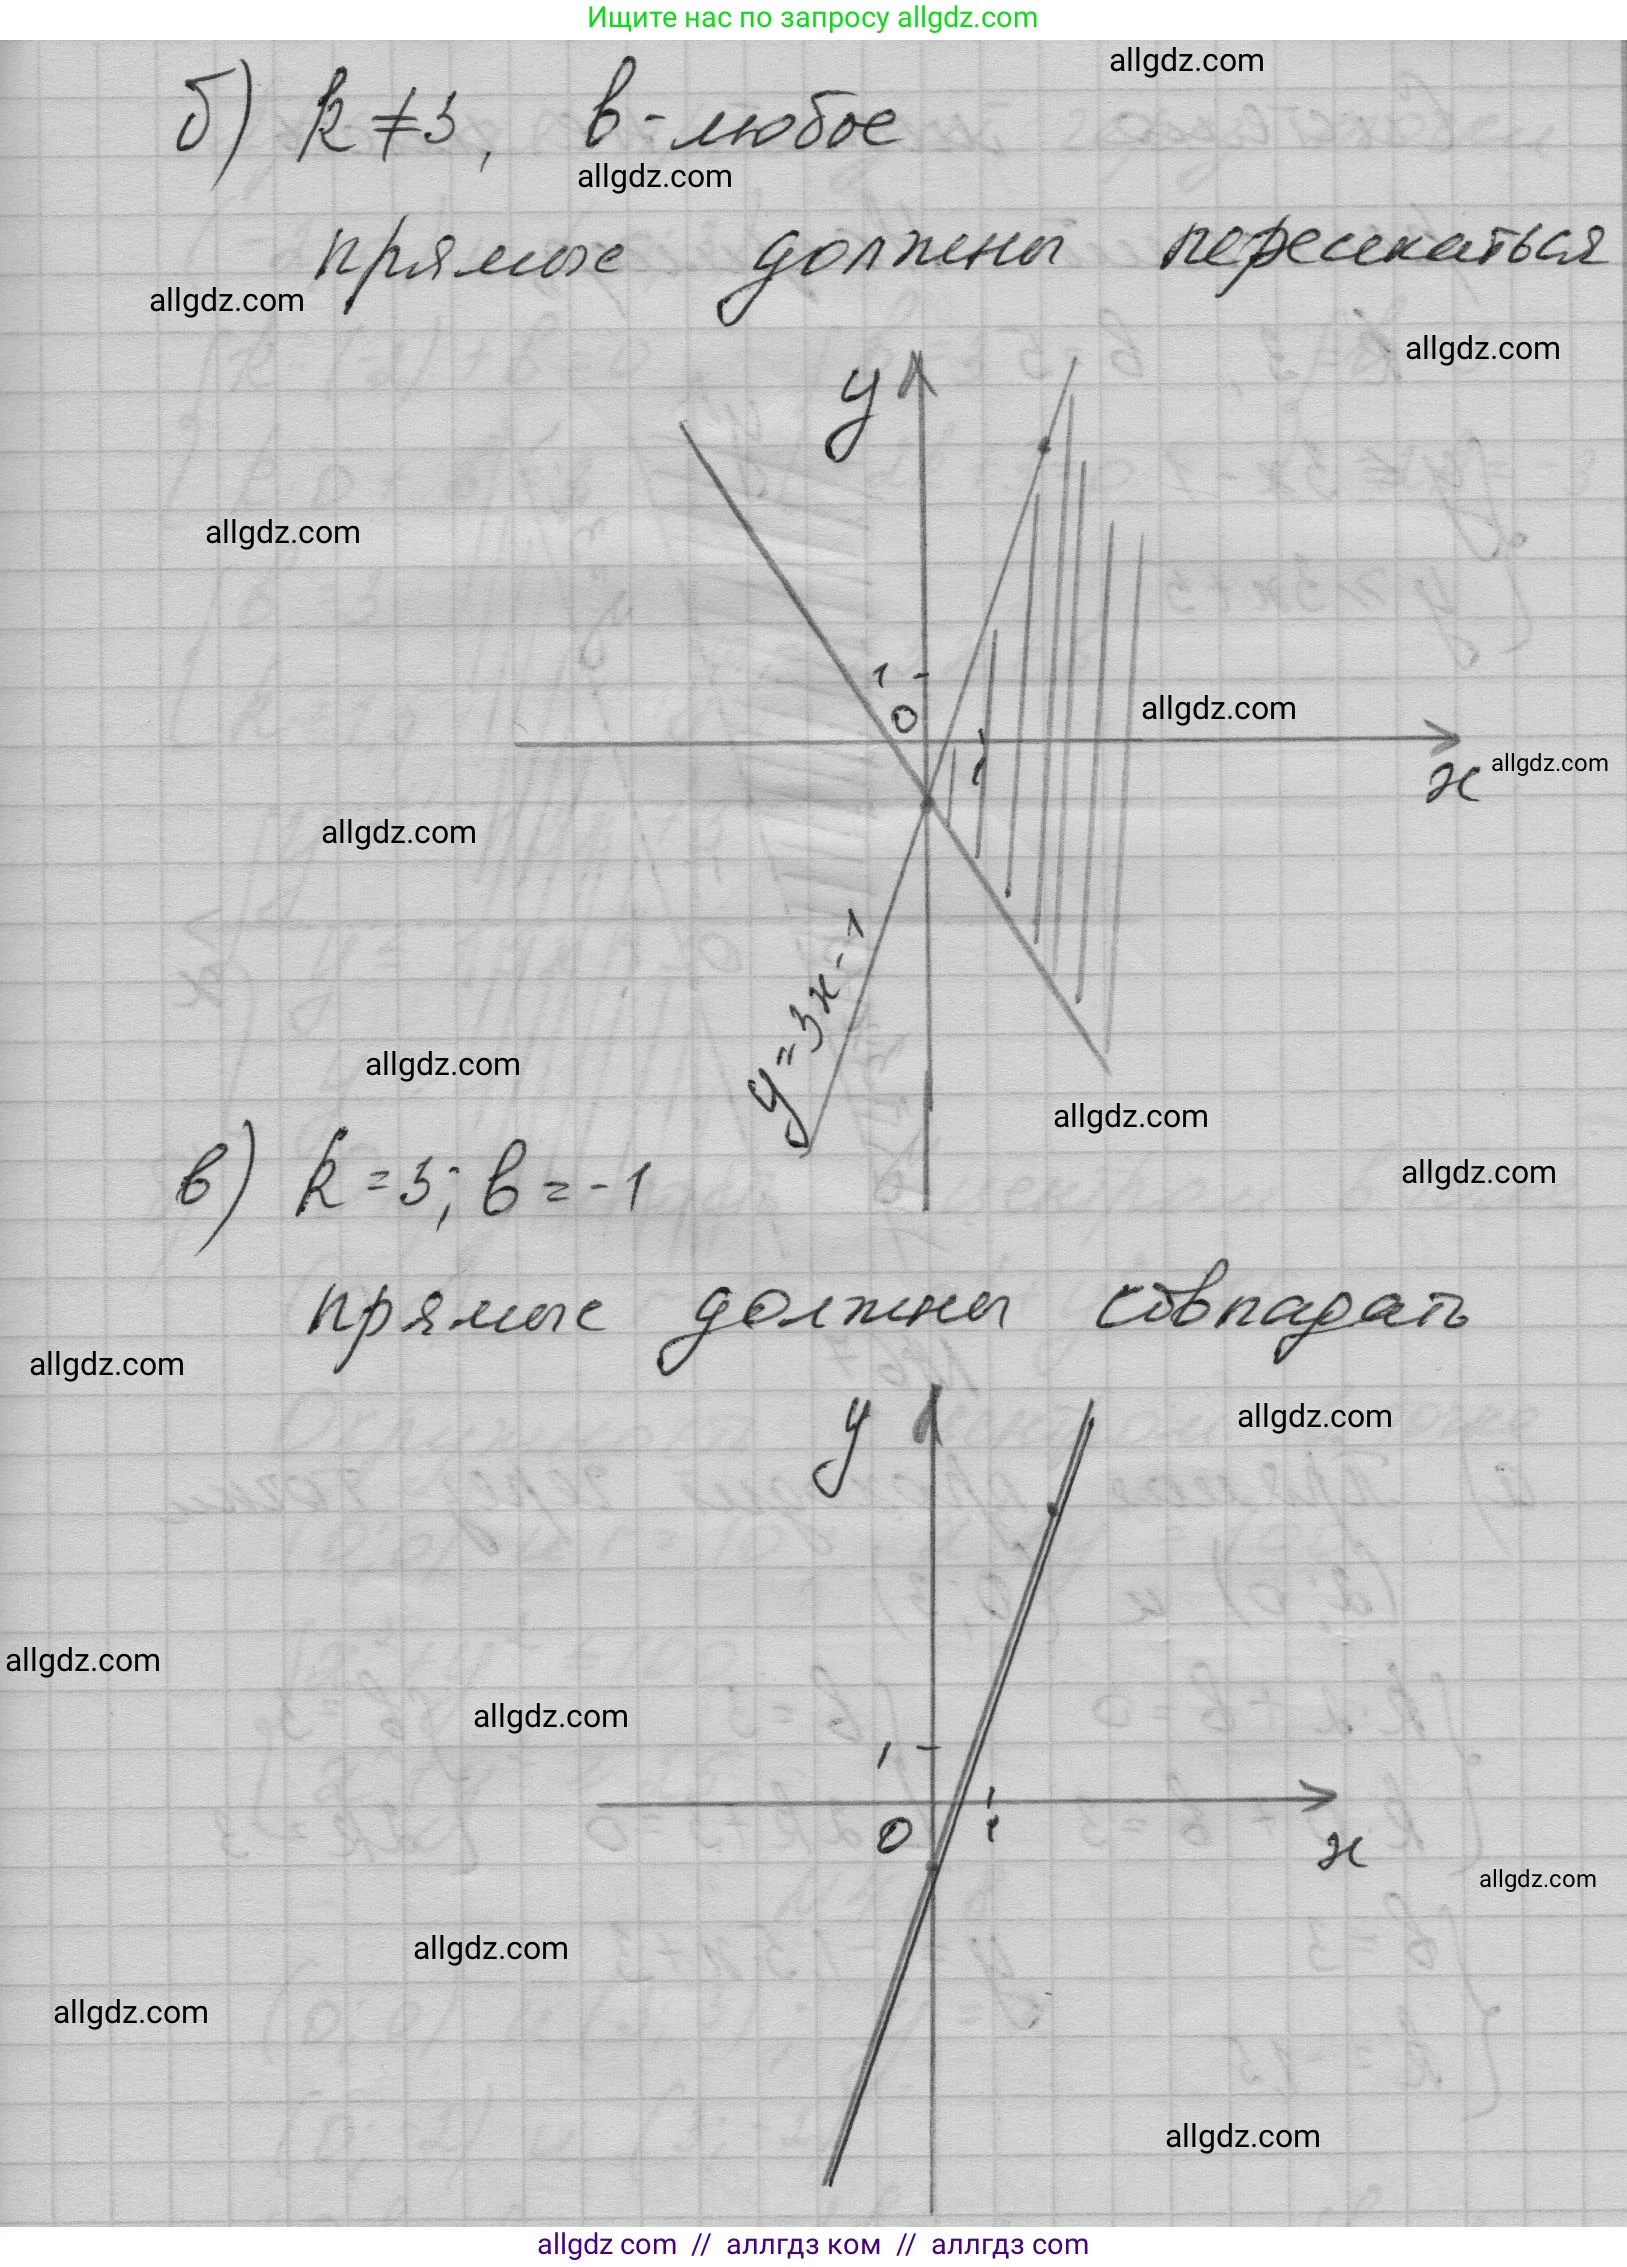 Ищите нас по запросу allgdz.com
allgdz.com
б) k ≠ 3, b - любое
allgdz.com
прямые должны пересекаться
allgdz.com
allgdz.com
y
allgdz.com
1
0
allgdz.com
1
x
allgdz.com
allgdz.com
y = 3x - 1
allgdz.com
allgdz.com
в) k = 3; b = -1
allgdz.com
прямые должны совпадать
allgdz.com
y
allgdz.com
allgdz.com
allgdz.com
1
0
1
x
allgdz.com
allgdz.com
allgdz.com
allgdz.com
allgdz com // аллгдз ком // аллгдз com